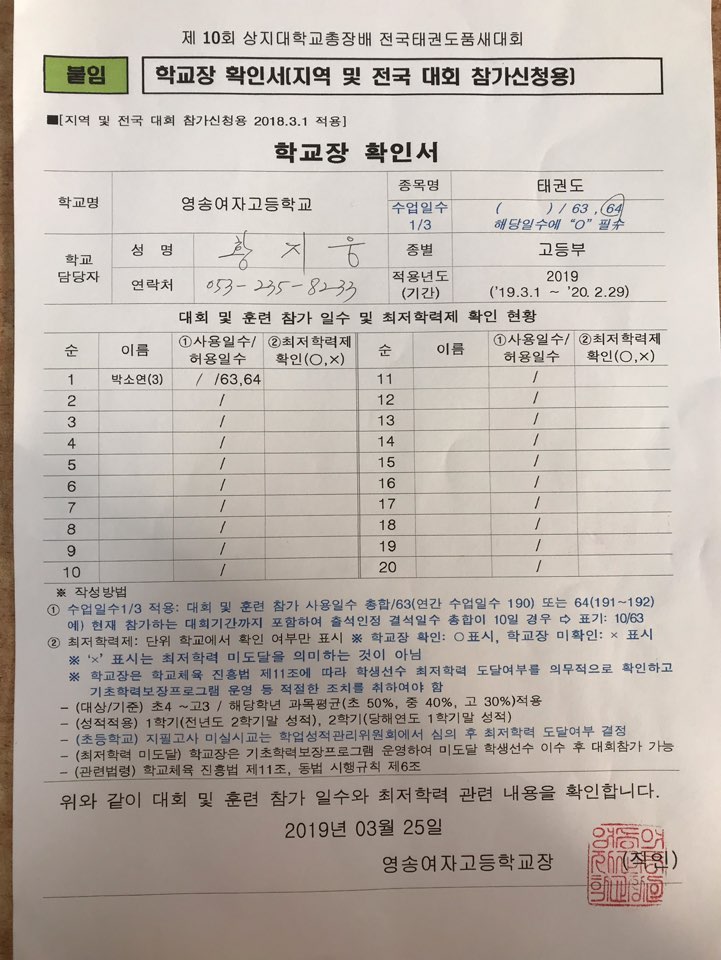 제 10회 상지대학교총장배 전국태권도품새대회
붙임 학교장 확인서(지역 및 전국 대회 참가신청용)
■[지역 및 전국 대회 참가신청용 2018.3.1 적용]
학교장 확인서
학교명 영송여자고등학교 종목명 태권도
수업일수 1/3 ( ) / 63 , 64
해당일수에 “O” 필수
학교 담당자 성 명 황지웅 종별 고등부
연락처 053-235-8233 적용년도 (기간) 2019
('19.3.1 ~ '20. 2.29)
대회 및 훈련 참가 일수 및 최저학력제 확인 현황
순 이름 ①사용일수/허용일수 ②최저학력제 확인(○,×) 순 이름 ①사용일수/허용일수 ②최저학력제 확인(○,×)
1 박소연(3) / /63,64 11 /
2 / 12 /
3 / 13 /
4 / 14 /
5 / 15 /
6 / 16 /
7 / 17 /
8 / 18 /
9 / 19 /
10 / 20 /
※ 작성방법
① 수업일수1/3 적용: 대회 및 훈련 참가 사용일수 총합/63(연간 수업일수 190) 또는 64(191~192)
예) 현재 참가하는 대회기간까지 포함하여 출석인정 결석일수 총합이 10일 경우 ⇨ 표기: 10/63
② 최저학력제: 단위 학교에서 확인 여부만 표시 ※ 학교장 확인: ○표시, 학교장 미확인: × 표시
※ ‘×’ 표시는 최저학력 미도달을 의미하는 것이 아님
※ 학교장은 학교체육 진흥법 제11조에 따라 학생선수 최저학력 도달여부를 의무적으로 확인하고
기초학력보장프로그램 운영 등 적절한 조치를 취하여야 함
- (대상/기준) 초4 ~고3 / 해당학년 과목평균(초 50%, 중 40%, 고 30%)적용
- (성적적용) 1학기(전년도 2학기말 성적), 2학기(당해연도 1학기말 성적)
- (초등학교) 지필고사 미실시교는 학업성적관리위원회에서 심의 후 최저학력 도달여부 결정
- (최저학력 미도달) 학교장은 기초학력보장프로그램 운영하여 미도달 학생선수 이수 후 대회참가 가능
- (관련법령) 학교체육 진흥법 제11조, 동법 시행규칙 제6조
위와 같이 대회 및 훈련 참가 일수와 최저학력 관련 내용을 확인합니다.
2019년 03월 25일
영송여자고등학교장 (직인)